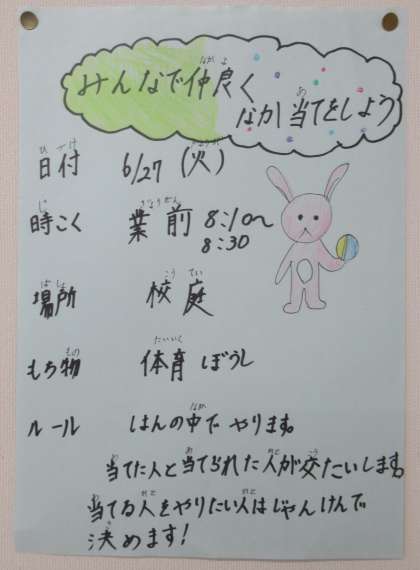 みんなで仲良く
なか当てをしよう
日付 6/27 (火)
時こく 業前 8:10~
8:30
場所 校庭
もち物 体育ぼうし
ルール はんの中でやります。
当てた人と当てられた人が交たいします。
当てる人をやりたい人はじゃんけんで
決めます!